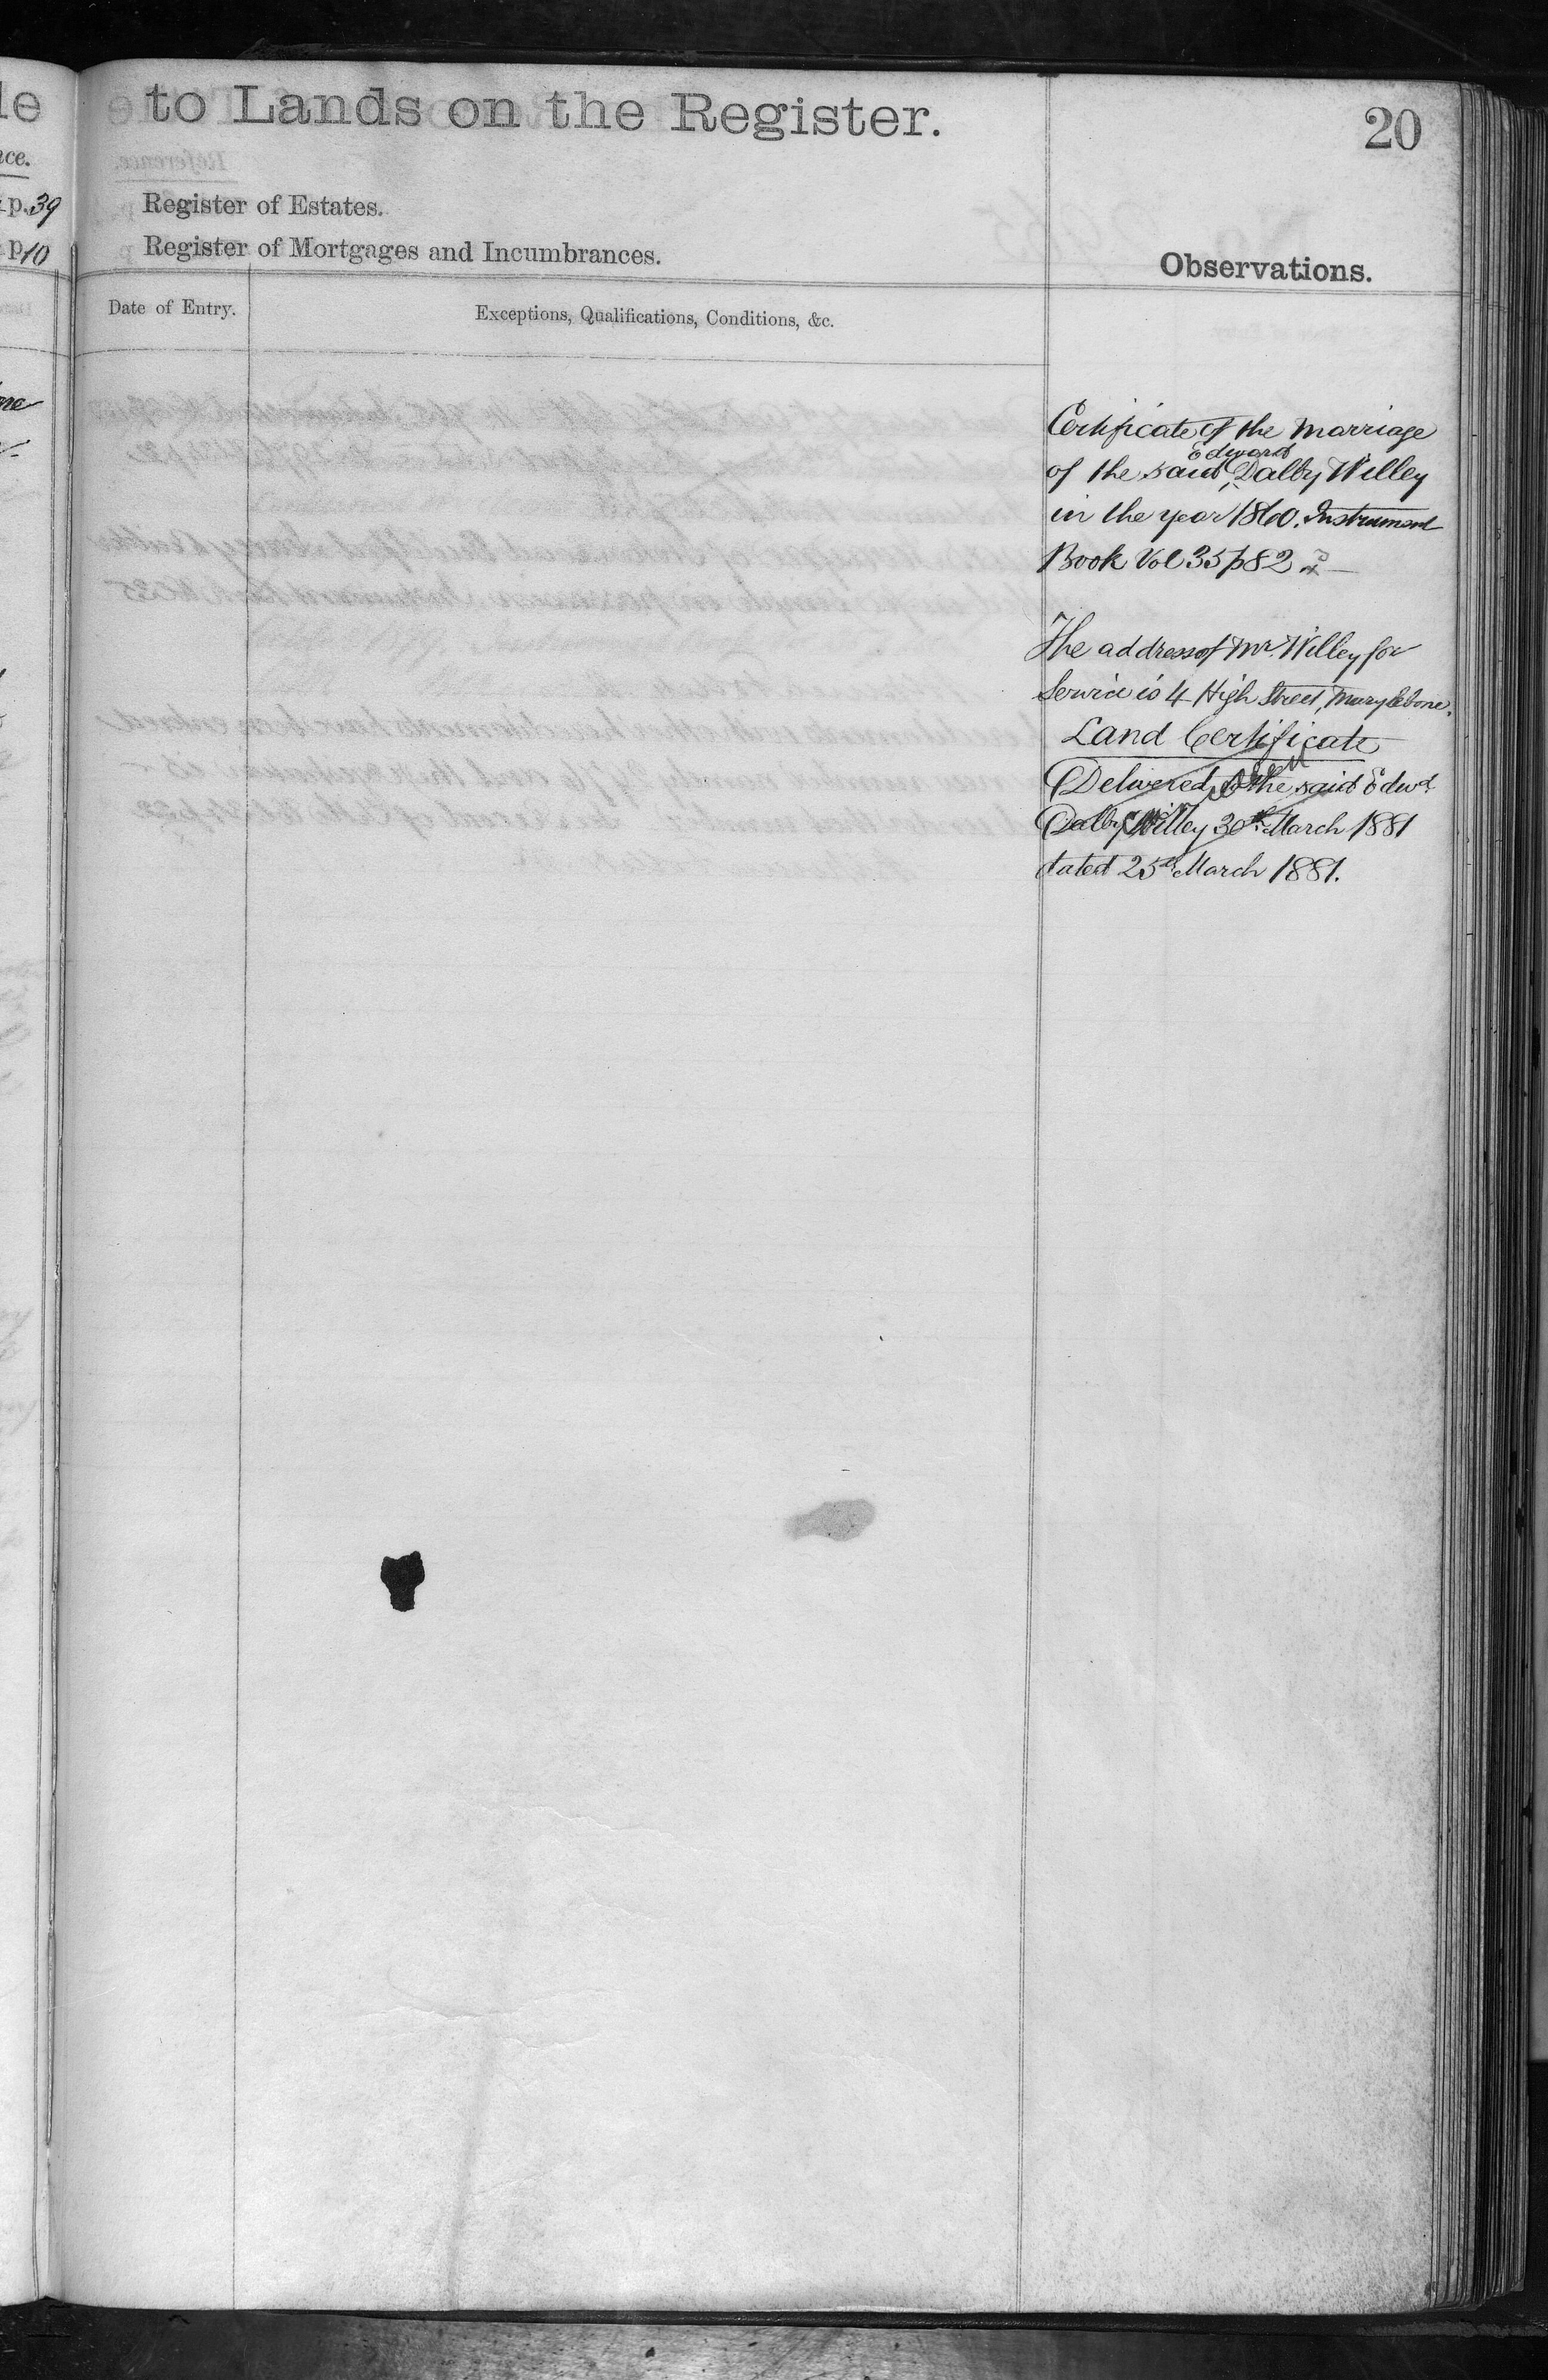 le to Lands on the Register. 20
ce.
p. 39 Register of Estates.
p 10 Register of Mortgages and Incumbrances.
Observations.
Date of Entry. Exceptions, Qualifications, Conditions, &c.
Certificate of the Marriage
Edward
of the said Dalby Willey
in the year 1860. Instrument
Book Vol 35 p 82
The address of Mr. Willey for
Service is 4 High Street, Marylebone.
Land Certificate
Delivered to the said Edwd.
Dalby Willey 30th March 1881
dated 25th March 1881.